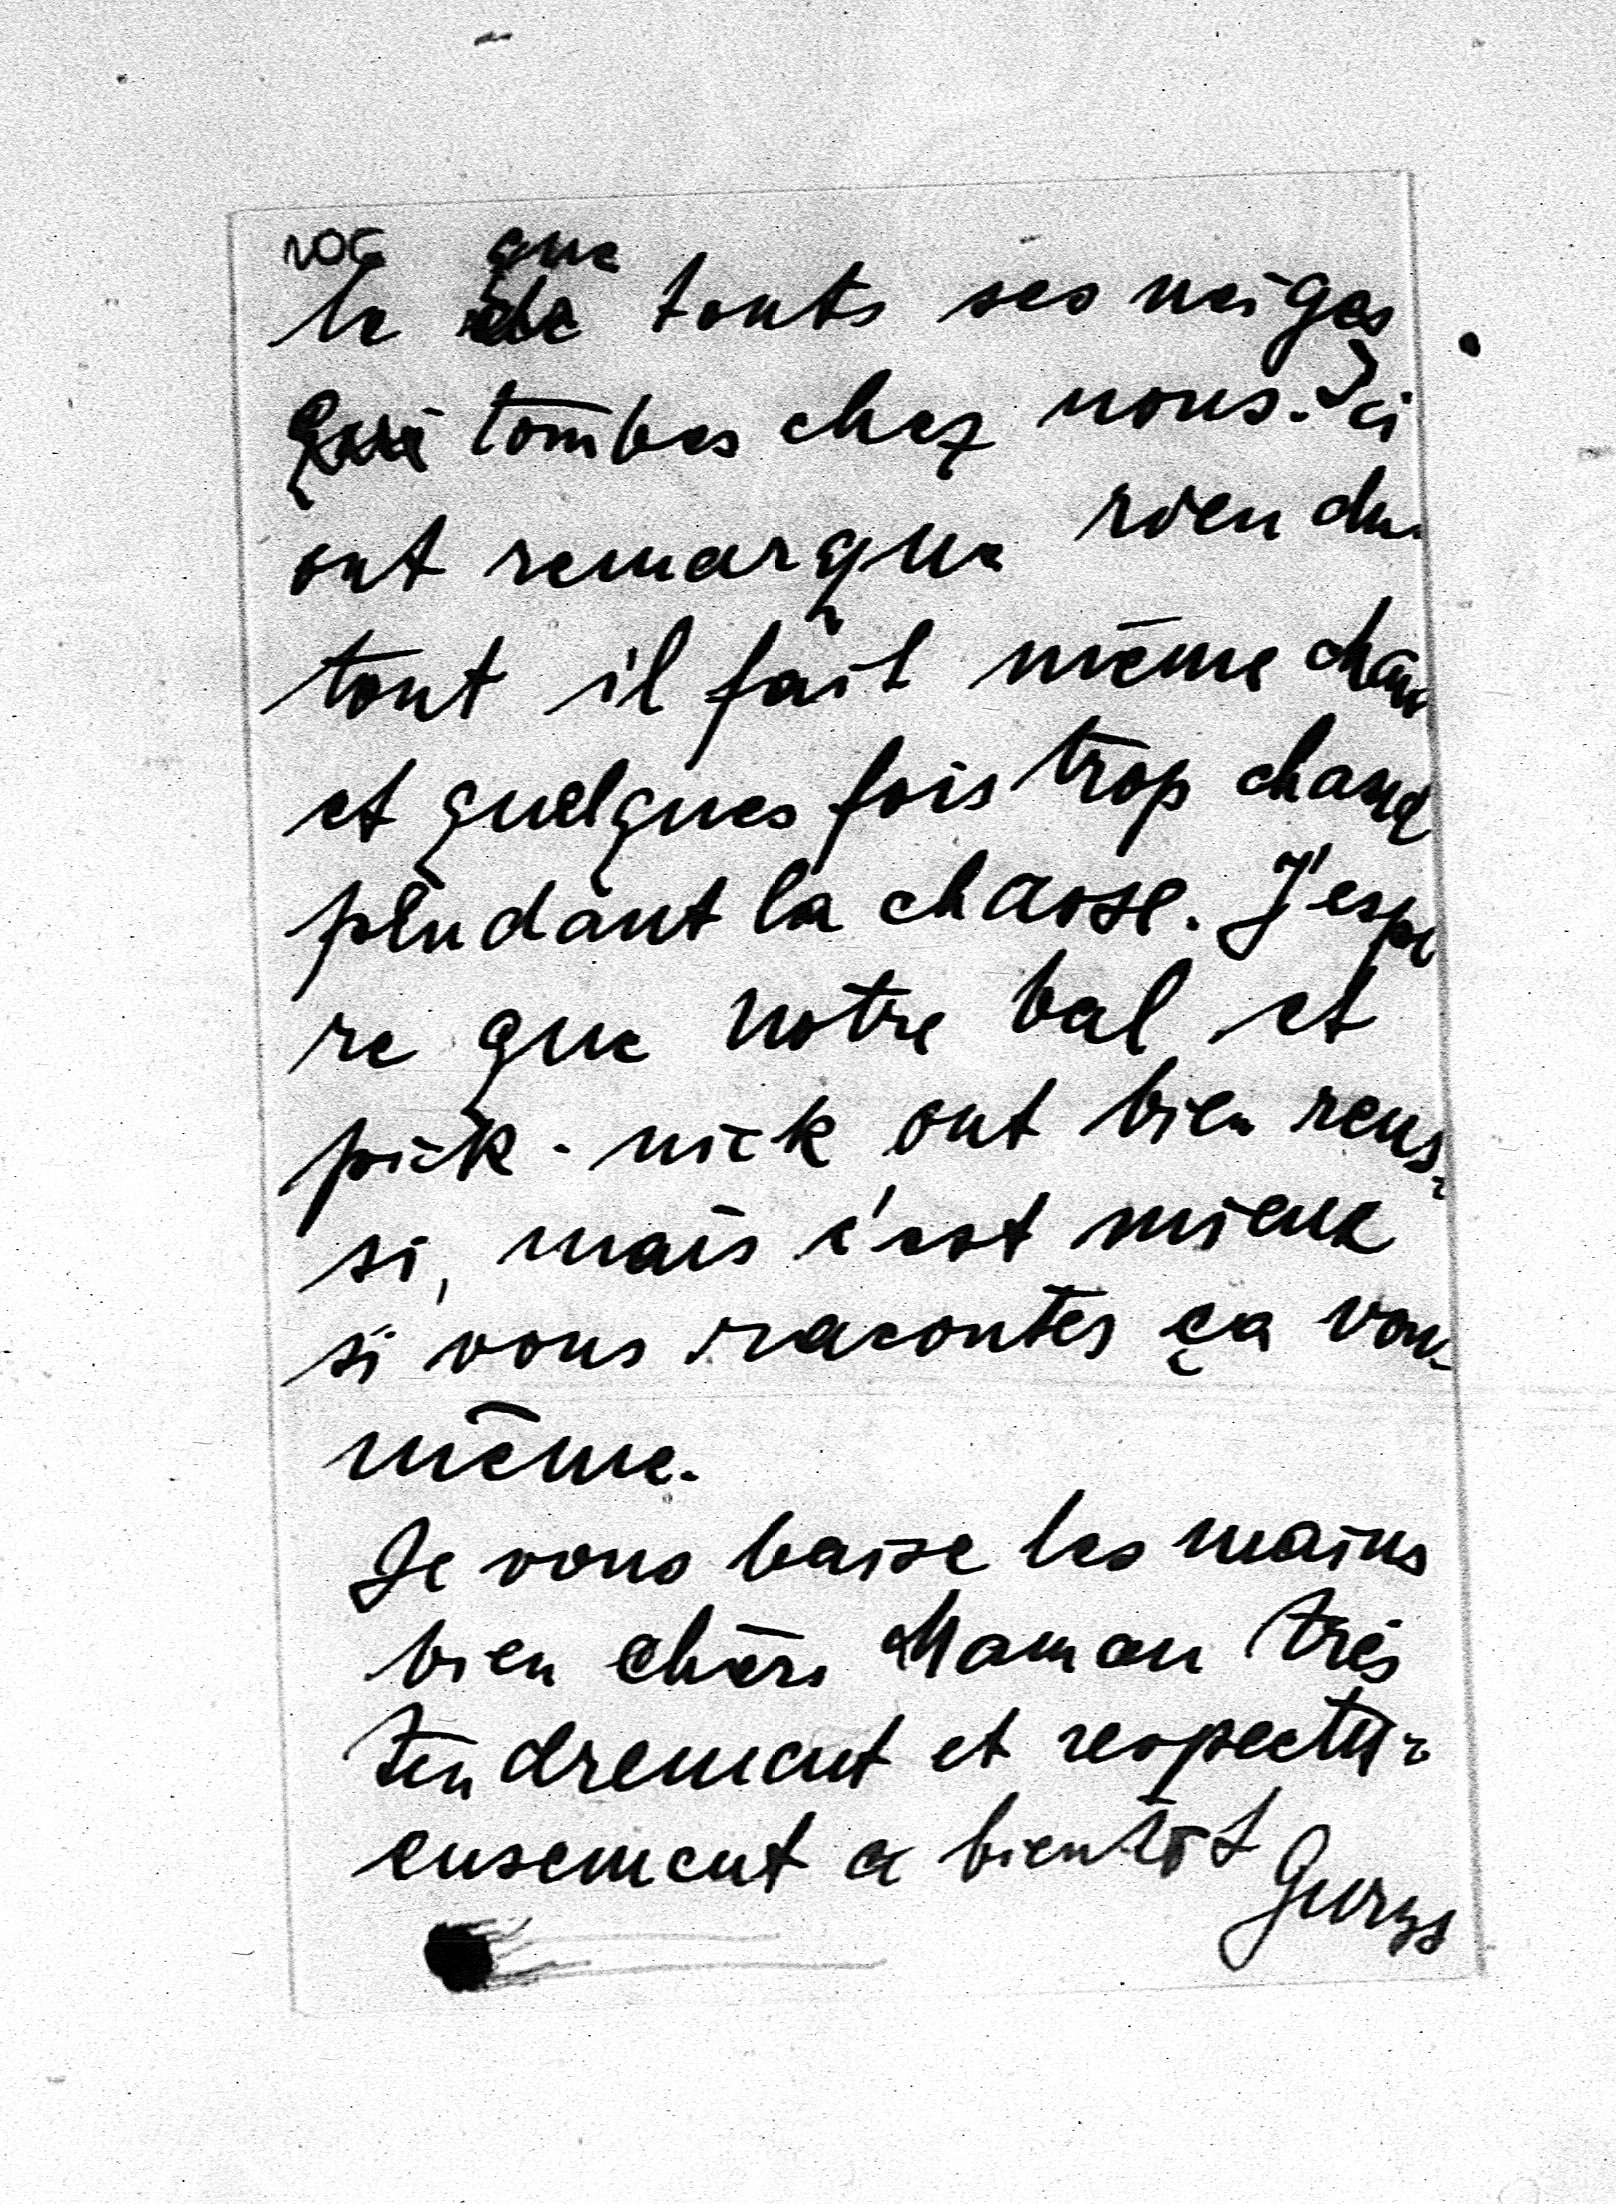 que
le de touts ses neiges
qui tombes chez nous. Ici
ont remarque rien du
tout il fait même chau
et quelques fois trop chaud
pendant la chasse. J'espe
re que notre bal et
pick-nick ont bien reus-
si, mais c'est mieux
si vous racontes ça vou-
même.
Je vous baise les mains
bien chèrs Maman très
tendrement et respectu-
eusement a bientôt